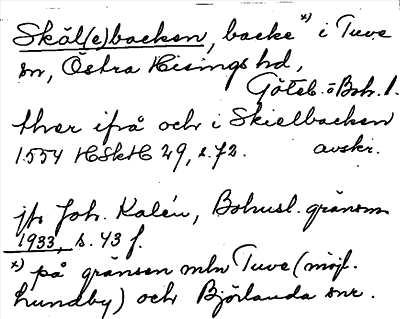 Skäl(e)backen, backe *) i Tuve
sn, Östra Hisings hd,
Göteb. o Boh. l.
ther ifrå och i Skielbacken
1554 HSkH 29, s. 72. avskr.
jfr Joh. Kalén, Bohusl. gränsm
1933, s. 43 f.
*) på gränsen mln Tuve (möjl.
Lundby) och Björlanda snr.